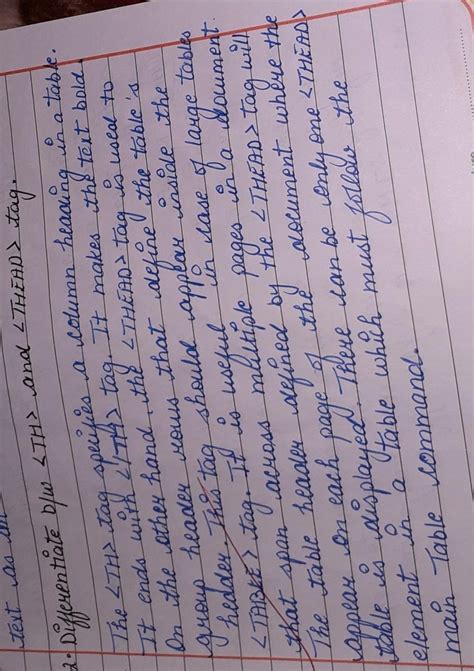 text as
2. Differentiate b/w <TH> and <THEAD> tag.
The <TH> tag speifies a column heading in a table.
It ends with </TH> tag. It makes the text bold.
On the other hand, the <THEAD> tag is used to
group header rows that define the table's
header This tag should appear inside the
<TABLE> tag. It is useful in case of large tables
that span across multiple pages in a document.
The table header defined by the <THEAD> tag will
appear on each page of the document where the
table is displayed. There can be only one <THEAD>
element in a table which must follow the
main Table command.